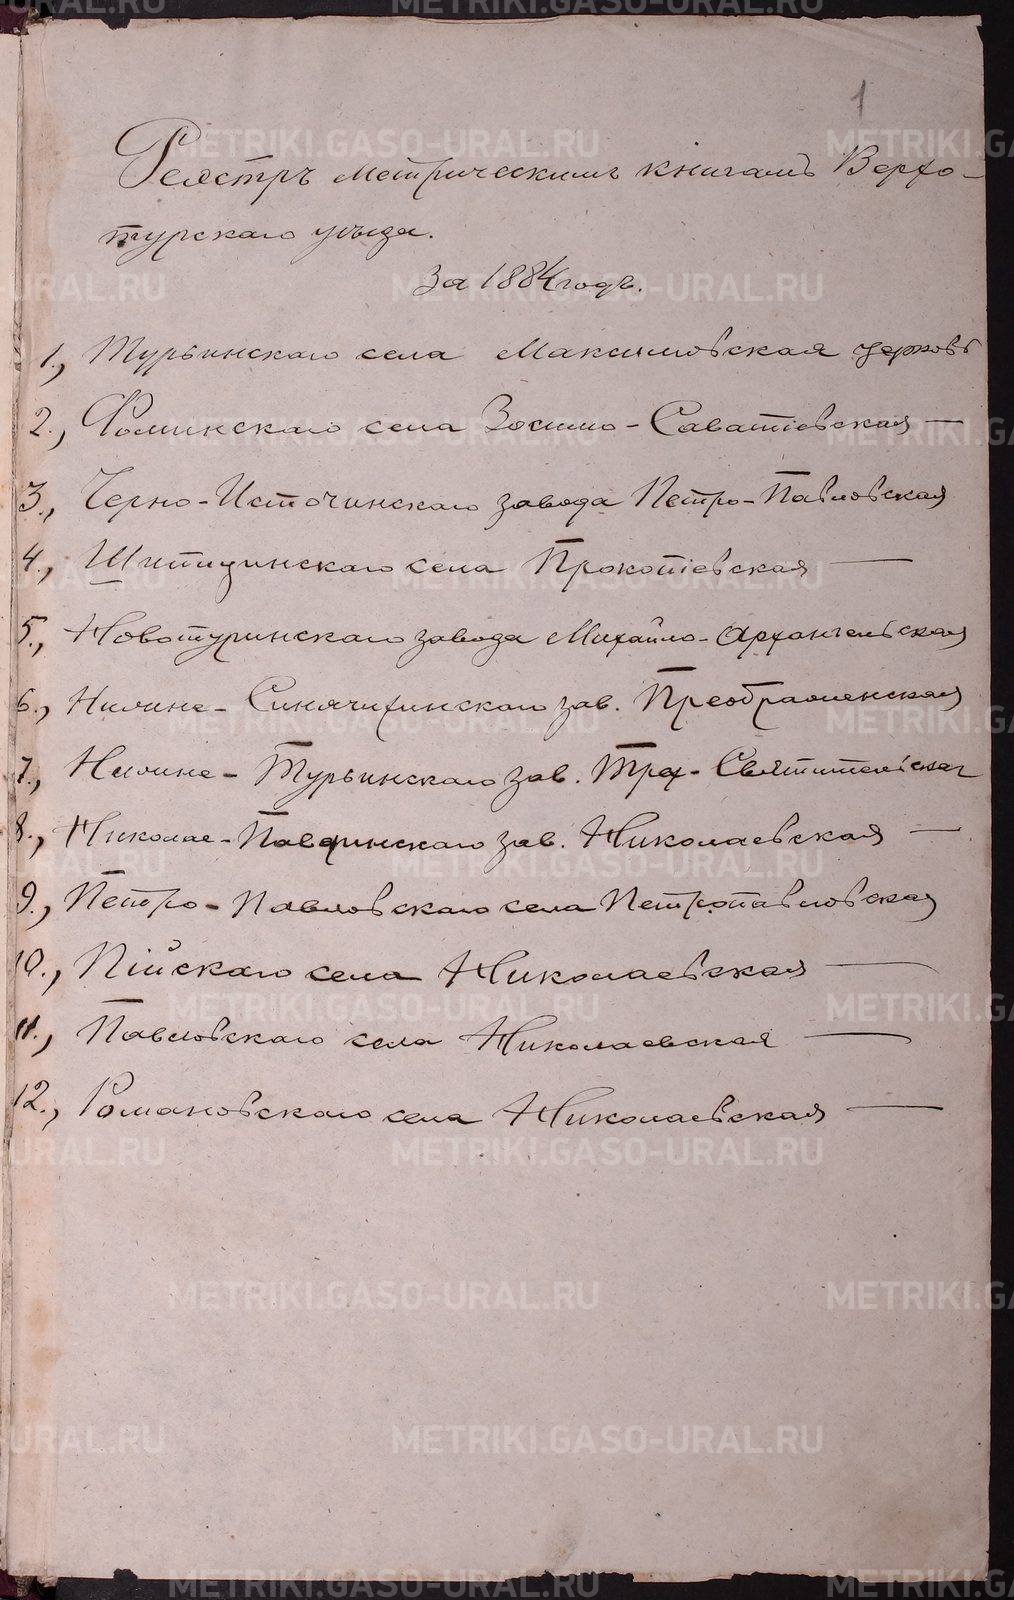 1
Реэстръ метрическимъ книгамъ Верхо-
турскаго уѣзда.
За 1884 годъ.
1., Турьинскаго села Максимовская церковь
2., Фоминскаго села Зосимо-Саватіевская —
3., Черно-Источинскаго завода Петро-Павловская
4., Шипицинскаго села Прокопіевская —
5., Новотуринскаго завода Михайло-Архангельская
6., Нижне-Синячихинскаго зав. Преображенская
7., Нижне-Турьинскаго зав. Трех-Святительская
8., Николае-Павдинскаго зав. Николаевская —
9., Петро-Павловскаго села Петропавловская
10., Пійскаго села Николаевская —
11., Павловскаго села Николаевская —
12., Романовскаго села Николаевская —
METRIKI.GASO-URAL.RU